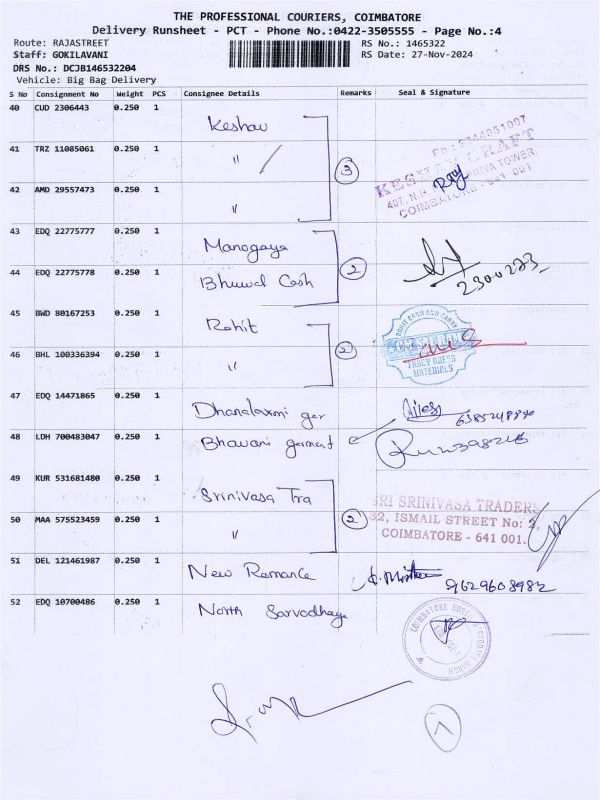 THE PROFESSIONAL COURIERS, COIMBATORE
Delivery Runsheet - PCT - Phone No.:0422-3505555 - Page No.:4
Route: RAJASTREET RS No.: 1465322
Staff: GOKILAVANI RS Date: 27-Nov-2024
DRS No.: DCJB146532204
Vehicle: Big Bag Delivery
S No Consignment No Weight PCS Consignee Details Remarks Seal & Signature
40 CUD 2306443 0.250 1 Keshav
41 TRZ 11085061 0.250 1 " 3
COIMBATORE - 641 001
42 AMD 29557473 0.250 1 "
43 EDQ 22775777 0.250 1 Manogaya
44 EDQ 22775778 0.250 1 Bhuwal Cash 2 2300273
45 BWD 80167253 0.250 1 Rohit
46 BHL 100336394 0.250 1 " 2
FANCY DRESS
MATERIALS
47 EDQ 14471865 0.250 1 Dhanalaxmi gar
48 LDH 700483047 0.250 1 Bhavani garment
49 KUR 531681480 0.250 1 Srinivasa Tra
SRI SRINIVASA TRADERS
32, ISMAIL STREET No: 2,
COIMBATORE - 641 001.
50 MAA 575523459 0.250 1 " 2
51 DEL 121461987 0.250 1 New Romance 9629608982
52 EDQ 10700486 0.250 1 North Sarvodhaya